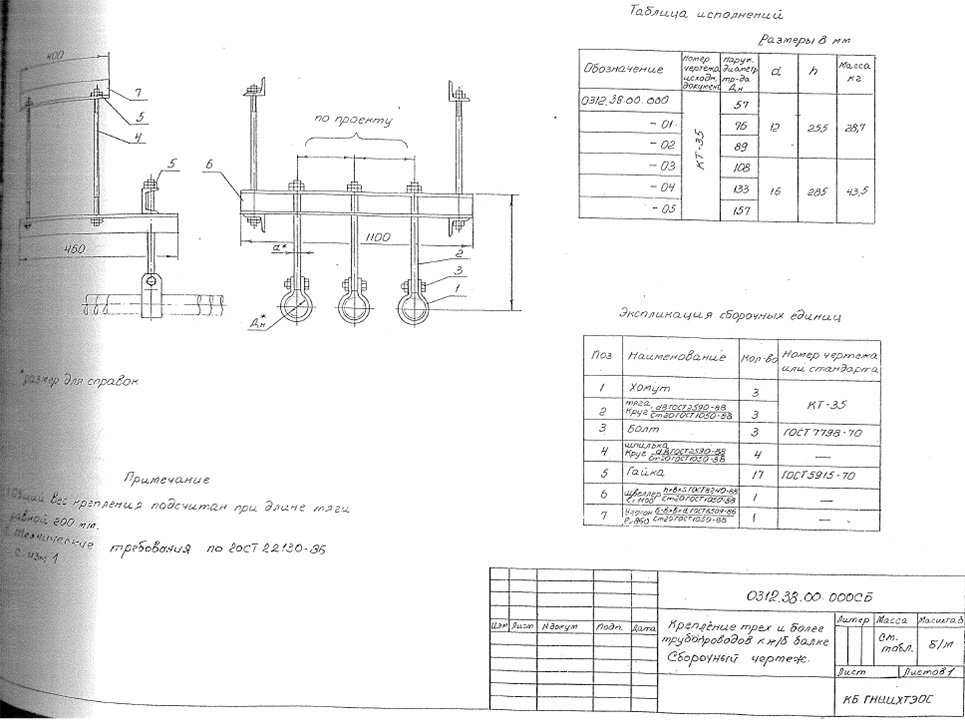 Таблица исполнений
Размеры в мм
Обозначение
Номер чертежа исходн. докумен.
Наруж. диаметр тр-да Дн
d
h
Масса кг
0312.38.00.000
57
- 01
76
12
255
28,7
- 02
89
КТ-35
- 03
108
- 04
133
16
285
43,5
- 05
157
400
7
5
4
5
460
по проекту
6
1100
d*
2
3
1
Дн*
*размер для справок
Примечание
вес крепления подсчитан при длине тяги
равной 200 мм.
Технические требования по ГОСТ 22130-86
с изм. 1
Экспликация сборочных единиц
Поз
Наименование
Кол-во
Номер чертежа или стандарта
1
Хомут
3
КТ-35
2
тяга
Круг dВ ГОСТ 2590-88
Ст20 ГОСТ 1050-88
3
3
Болт
3
ГОСТ 7798-70
4
шпилька
Круг dВ ГОСТ 2590-88
Ст20 ГОСТ 1050-88
4
—
5
Гайка
17
ГОСТ 5915-70
6
Швеллер
ГОСТ 8240-88
Ст20 ГОСТ 1050-88
1
—
7
Уголок
Ст20 ГОСТ 1050-88
1
—
0312.38.00.000СБ
Изм Лист N докум Подп. Дата
Крепление трех и более
трубопроводов к ж/б балке
Сборочный чертеж.
Литер Масса Масштаб
см. табл.
Б/м
Лист
Листов 1
КБ ГНИИХТЭОС